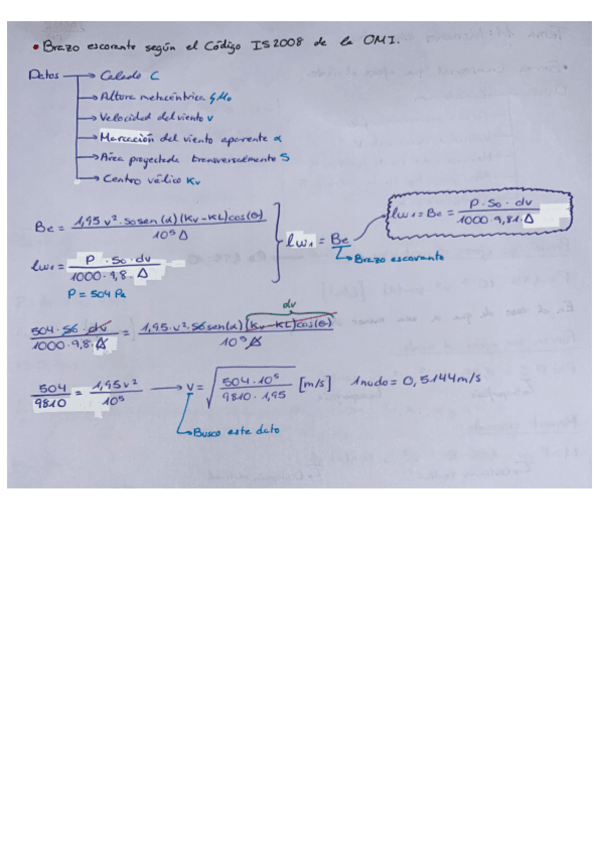 • Brazo escorante según el Código IS2008 de la OMI.
Datos → Calado C
→ Altura metacéntrica GM₀
→ Velocidad del viento v
→ Marcación del viento aparente α
→ Área proyectada transversalmente S
→ Centro vélico Kv
Be = 1,95 v² · So sen(α)(Kv - KL)cos(θ) / 10⁵ Δ
lw₁ = P · So · dv / 1000 · 9,8 · Δ
P = 504 Pa
lw₁ = Be
Brazo escorante
lw₁ = Be = P · So · dv / 1000 · 9,81 · Δ
dv
504 · So · dv / 1000 · 9,8 · Δ = 1,95 · v² · So sen(α)(Kv - KL)cos(θ) / 10⁵ Δ
504 / 9810 = 1,95 v² / 10⁵ → v = √(504 · 10⁵ / 9810 · 1,95) [m/s] 1 nudo = 0,5144 m/s
Busco este dato